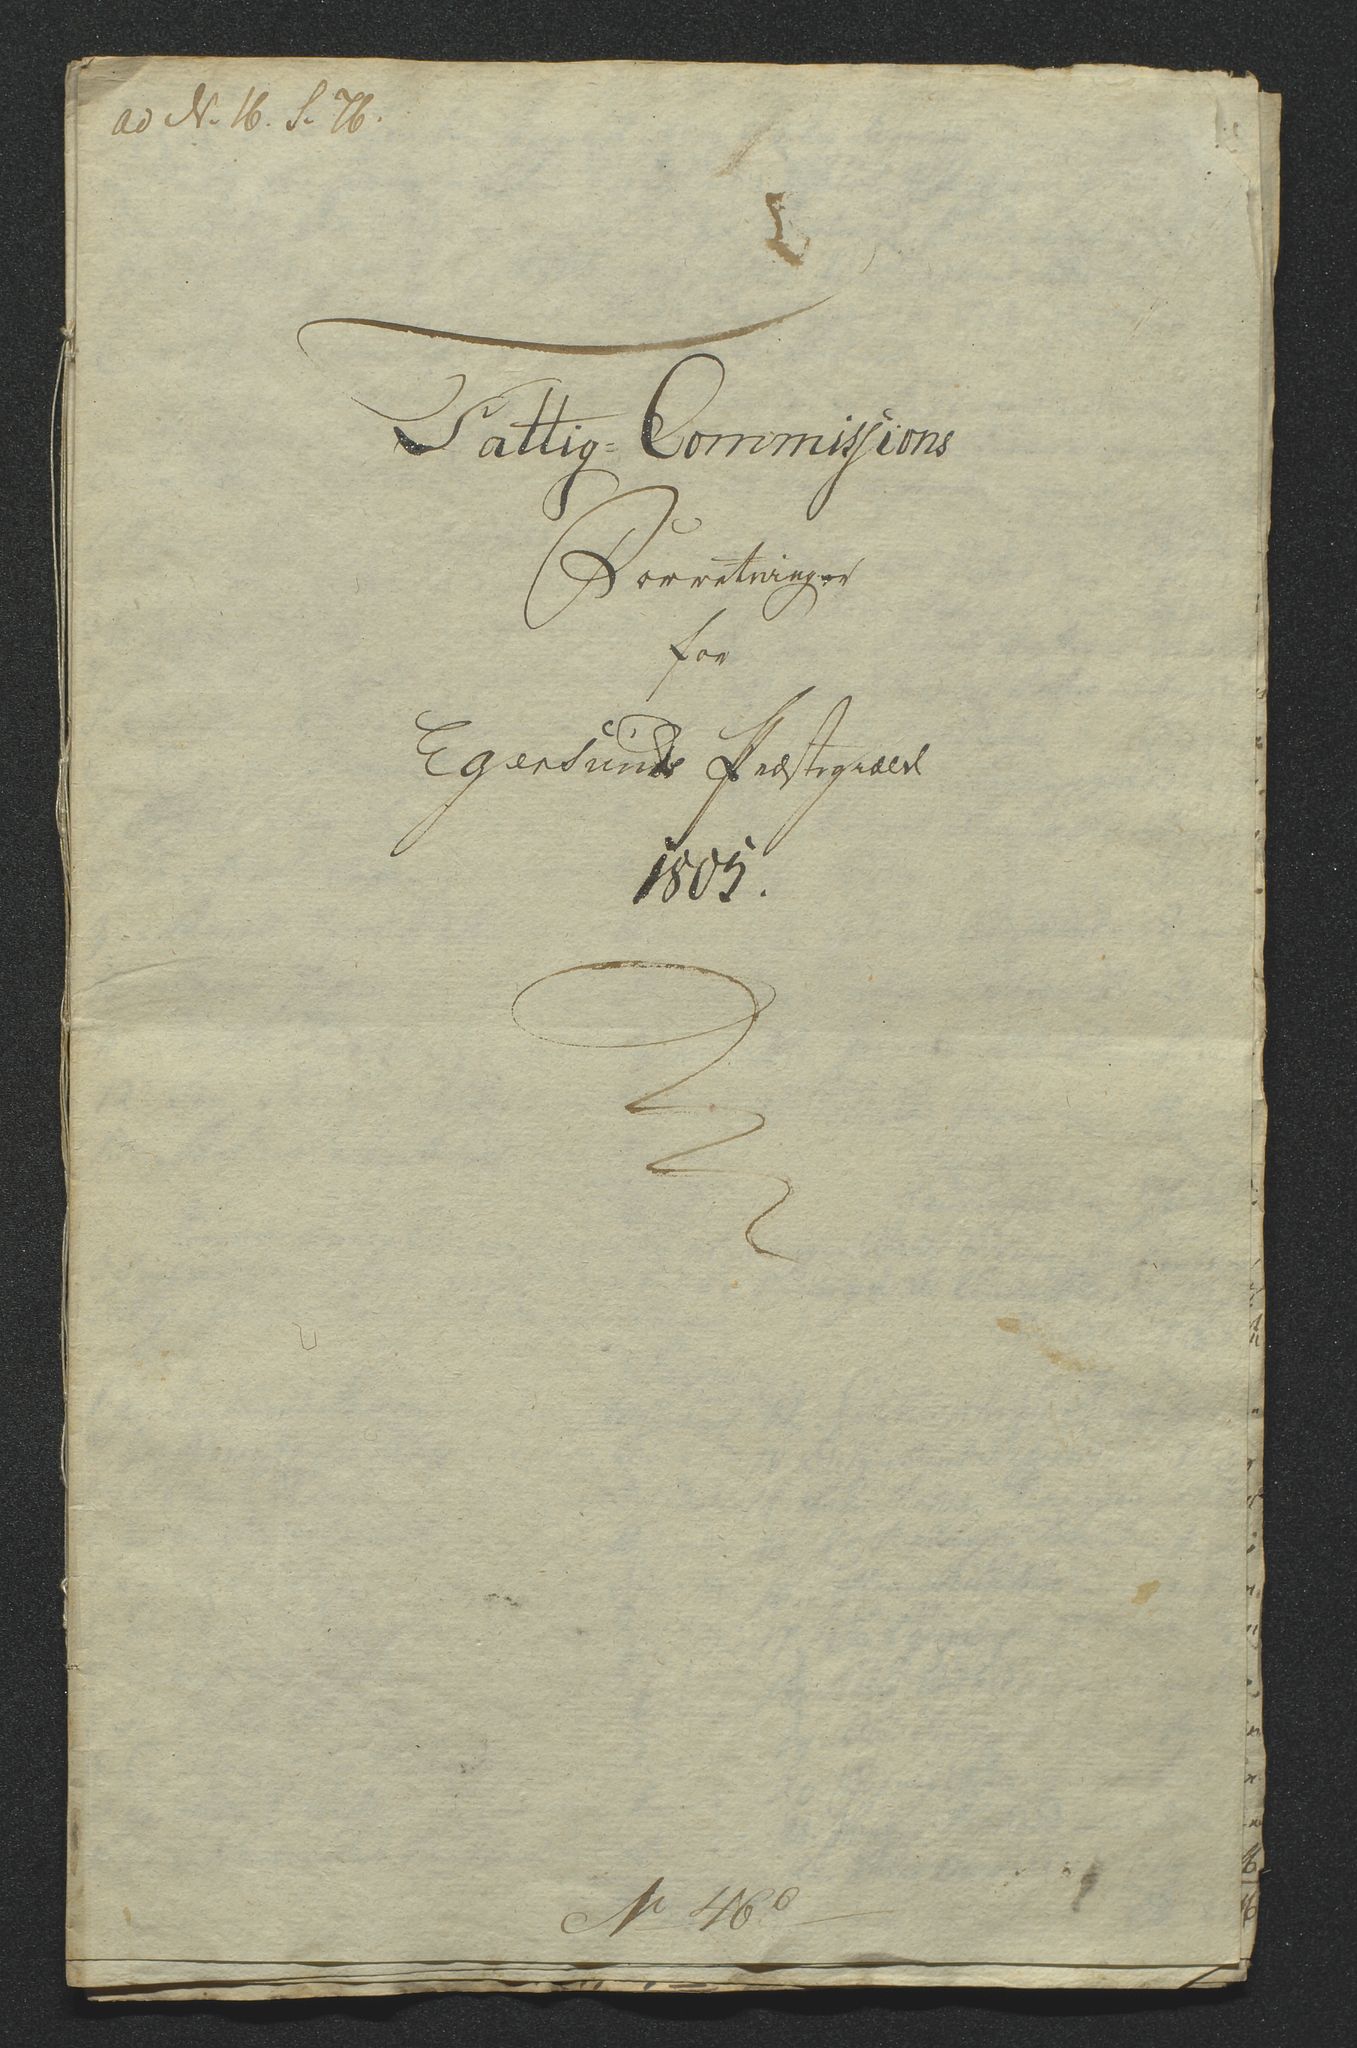 ad N. 16. S. 76.
Fattig=Commissions
Forretninger
for
Egersunds Præstegield
1805.
N 46